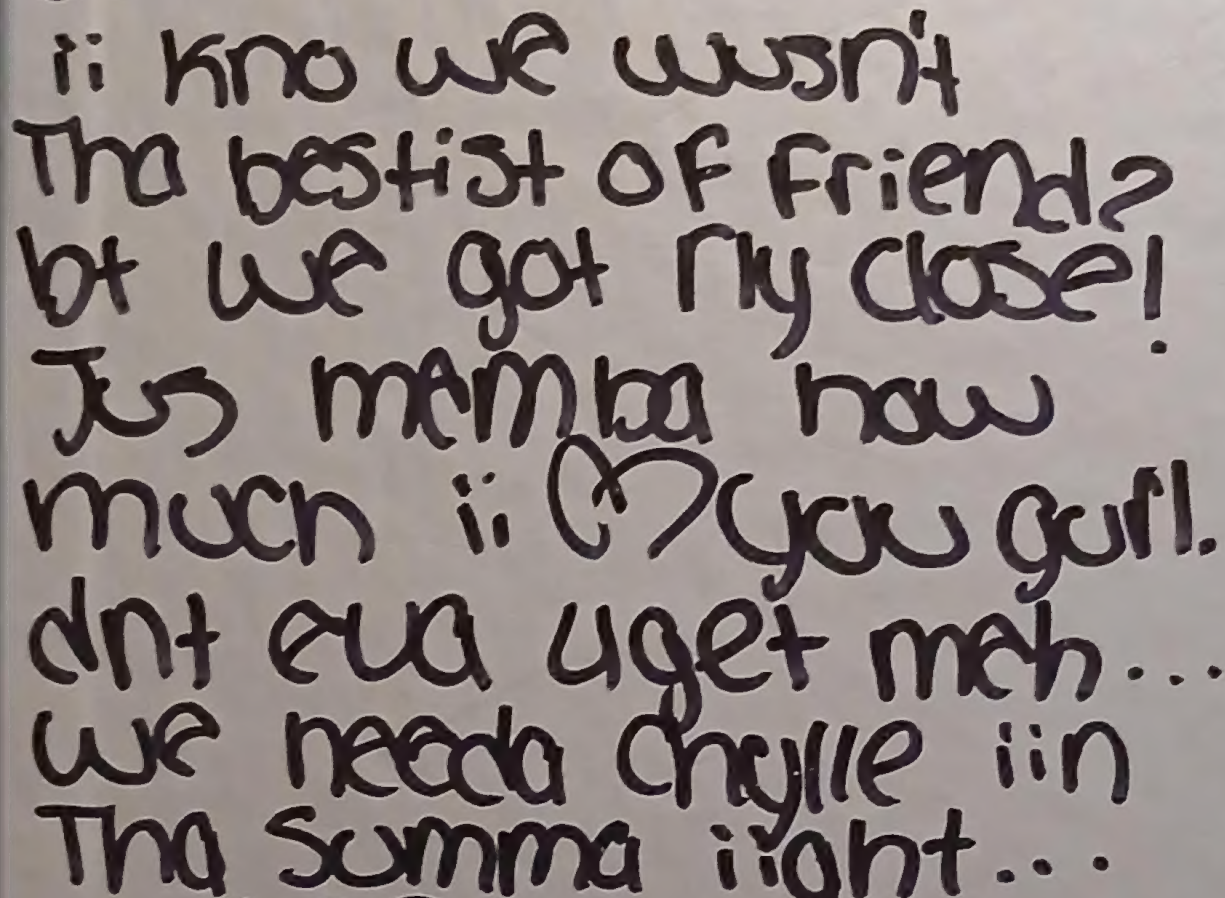 ii kno we wusn't
Tha bestist of friend?
bt we got rly close!
Jus memba how
much ii ♡ you gurl.
dnt eva 4get meh...
we needa chylle iin
Tha Summa iight...